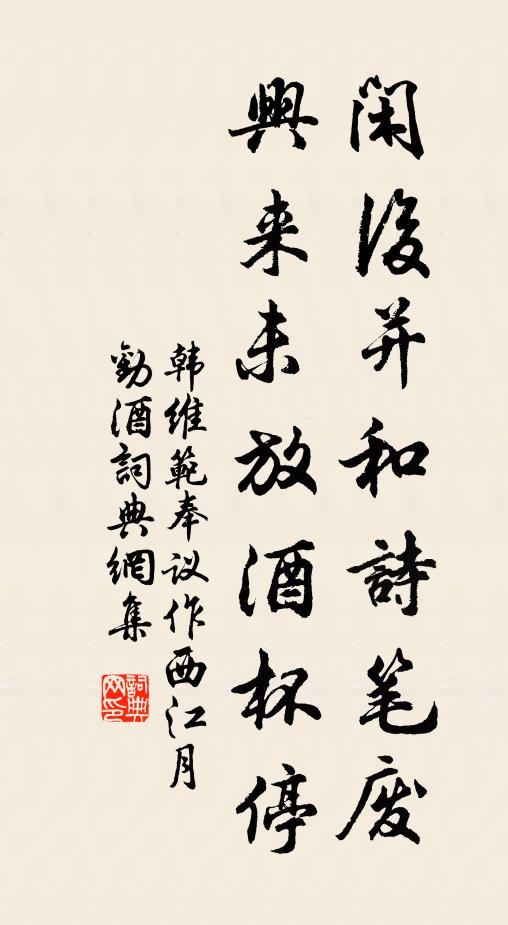 闲后并和詩笔废
興来未放酒杯停
韩維範奉议作西江月
勸酒詞典網集
詞典
网印